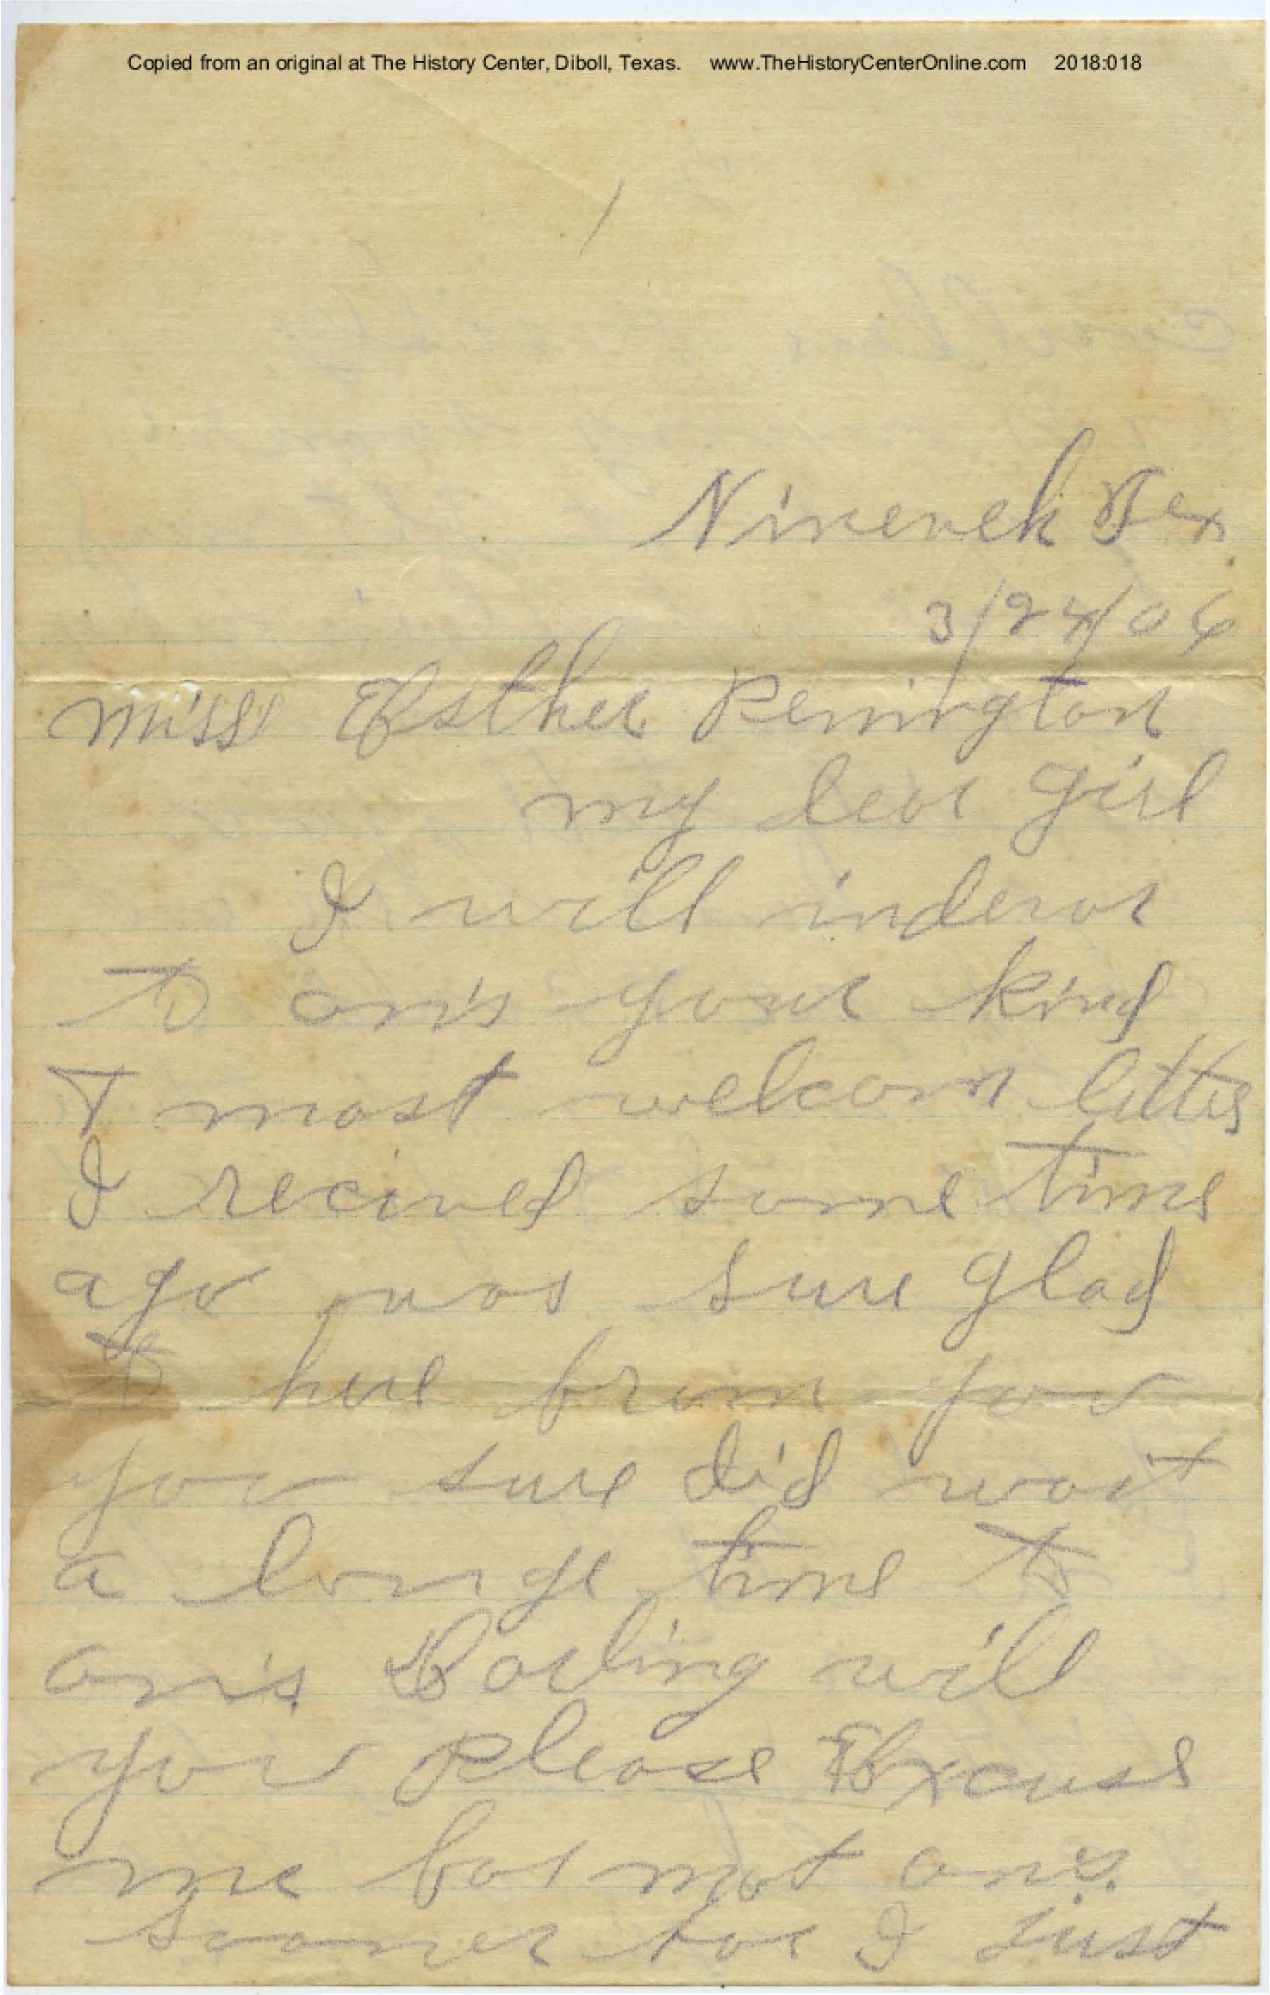 Copied from an original at The History Center, Diboll, Texas. www.TheHistoryCenterOnline.com 2018:018
1
Nineveh Tex.
3/24/06
miss Esther Penington
my dear girl
I will inderor
to ans your kind
& most welcom letter
I recived some time
ago was sure glad
to here from you
you sure did wait
a longe time to
ans Darling will
you please Excuse
me for not ans.
sooner for I just